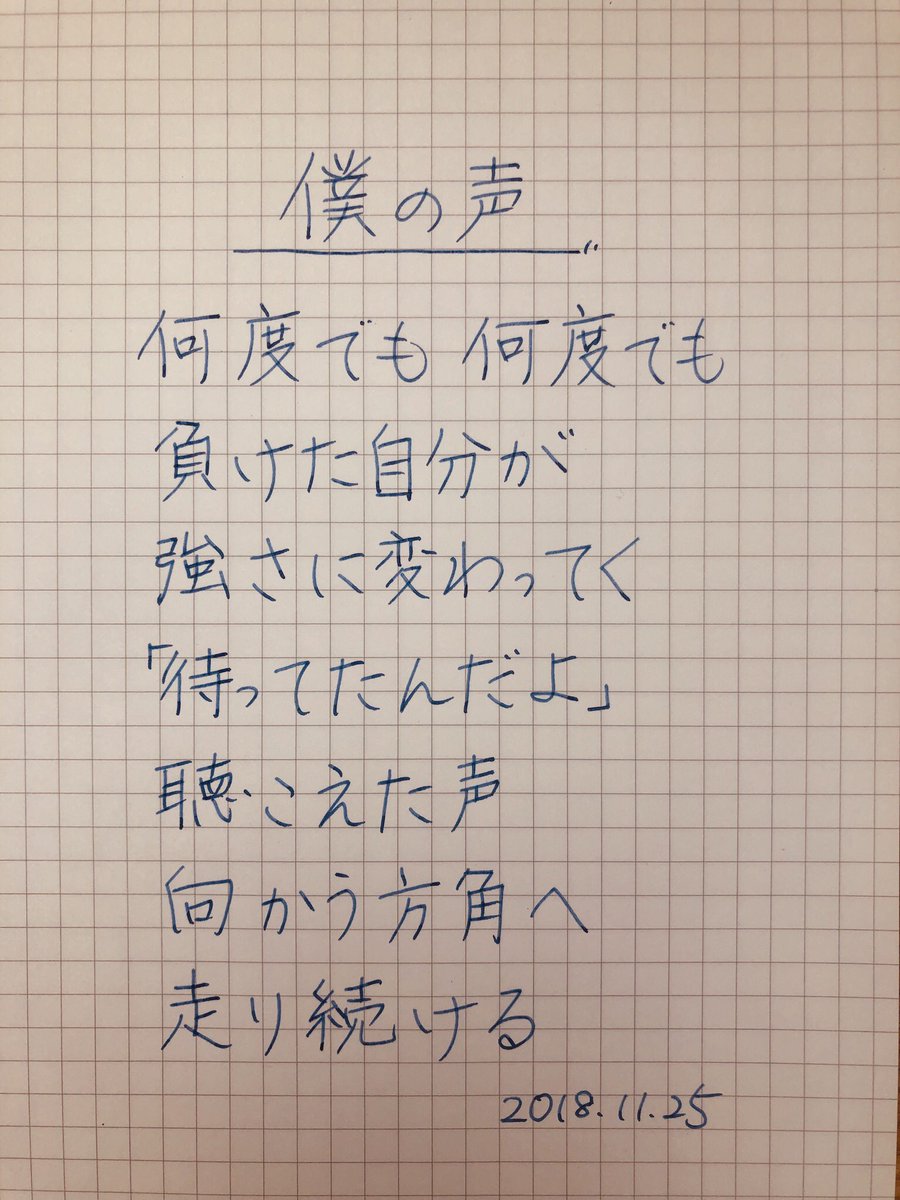 僕の声
何度でも 何度でも
負けた自分が
強さに変わってく
「待ってたんだよ」
聴こえた声
向かう方角へ
走り続ける
2018.11.25